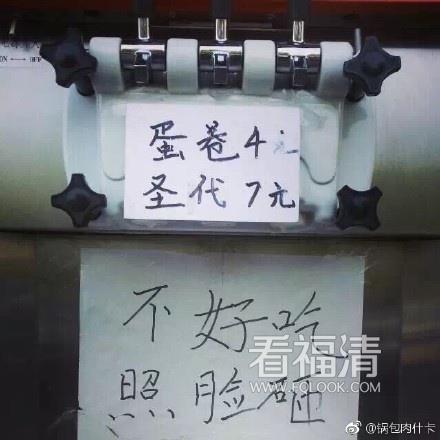 蛋卷4元
圣代7元
不好吃
照脸砸
看福清
WWW.FQLOOK.COM
@锅包肉什卡